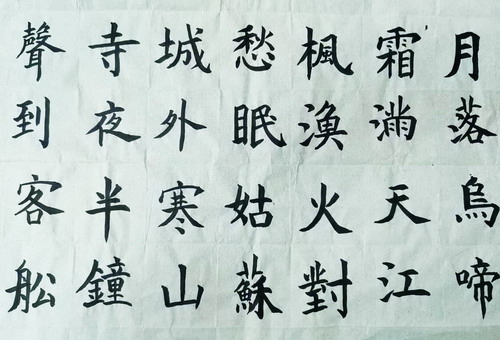 月落烏啼
霜滿天江
楓漁火對
愁眠姑蘇
城外寒山
寺夜半鐘
聲到客舩